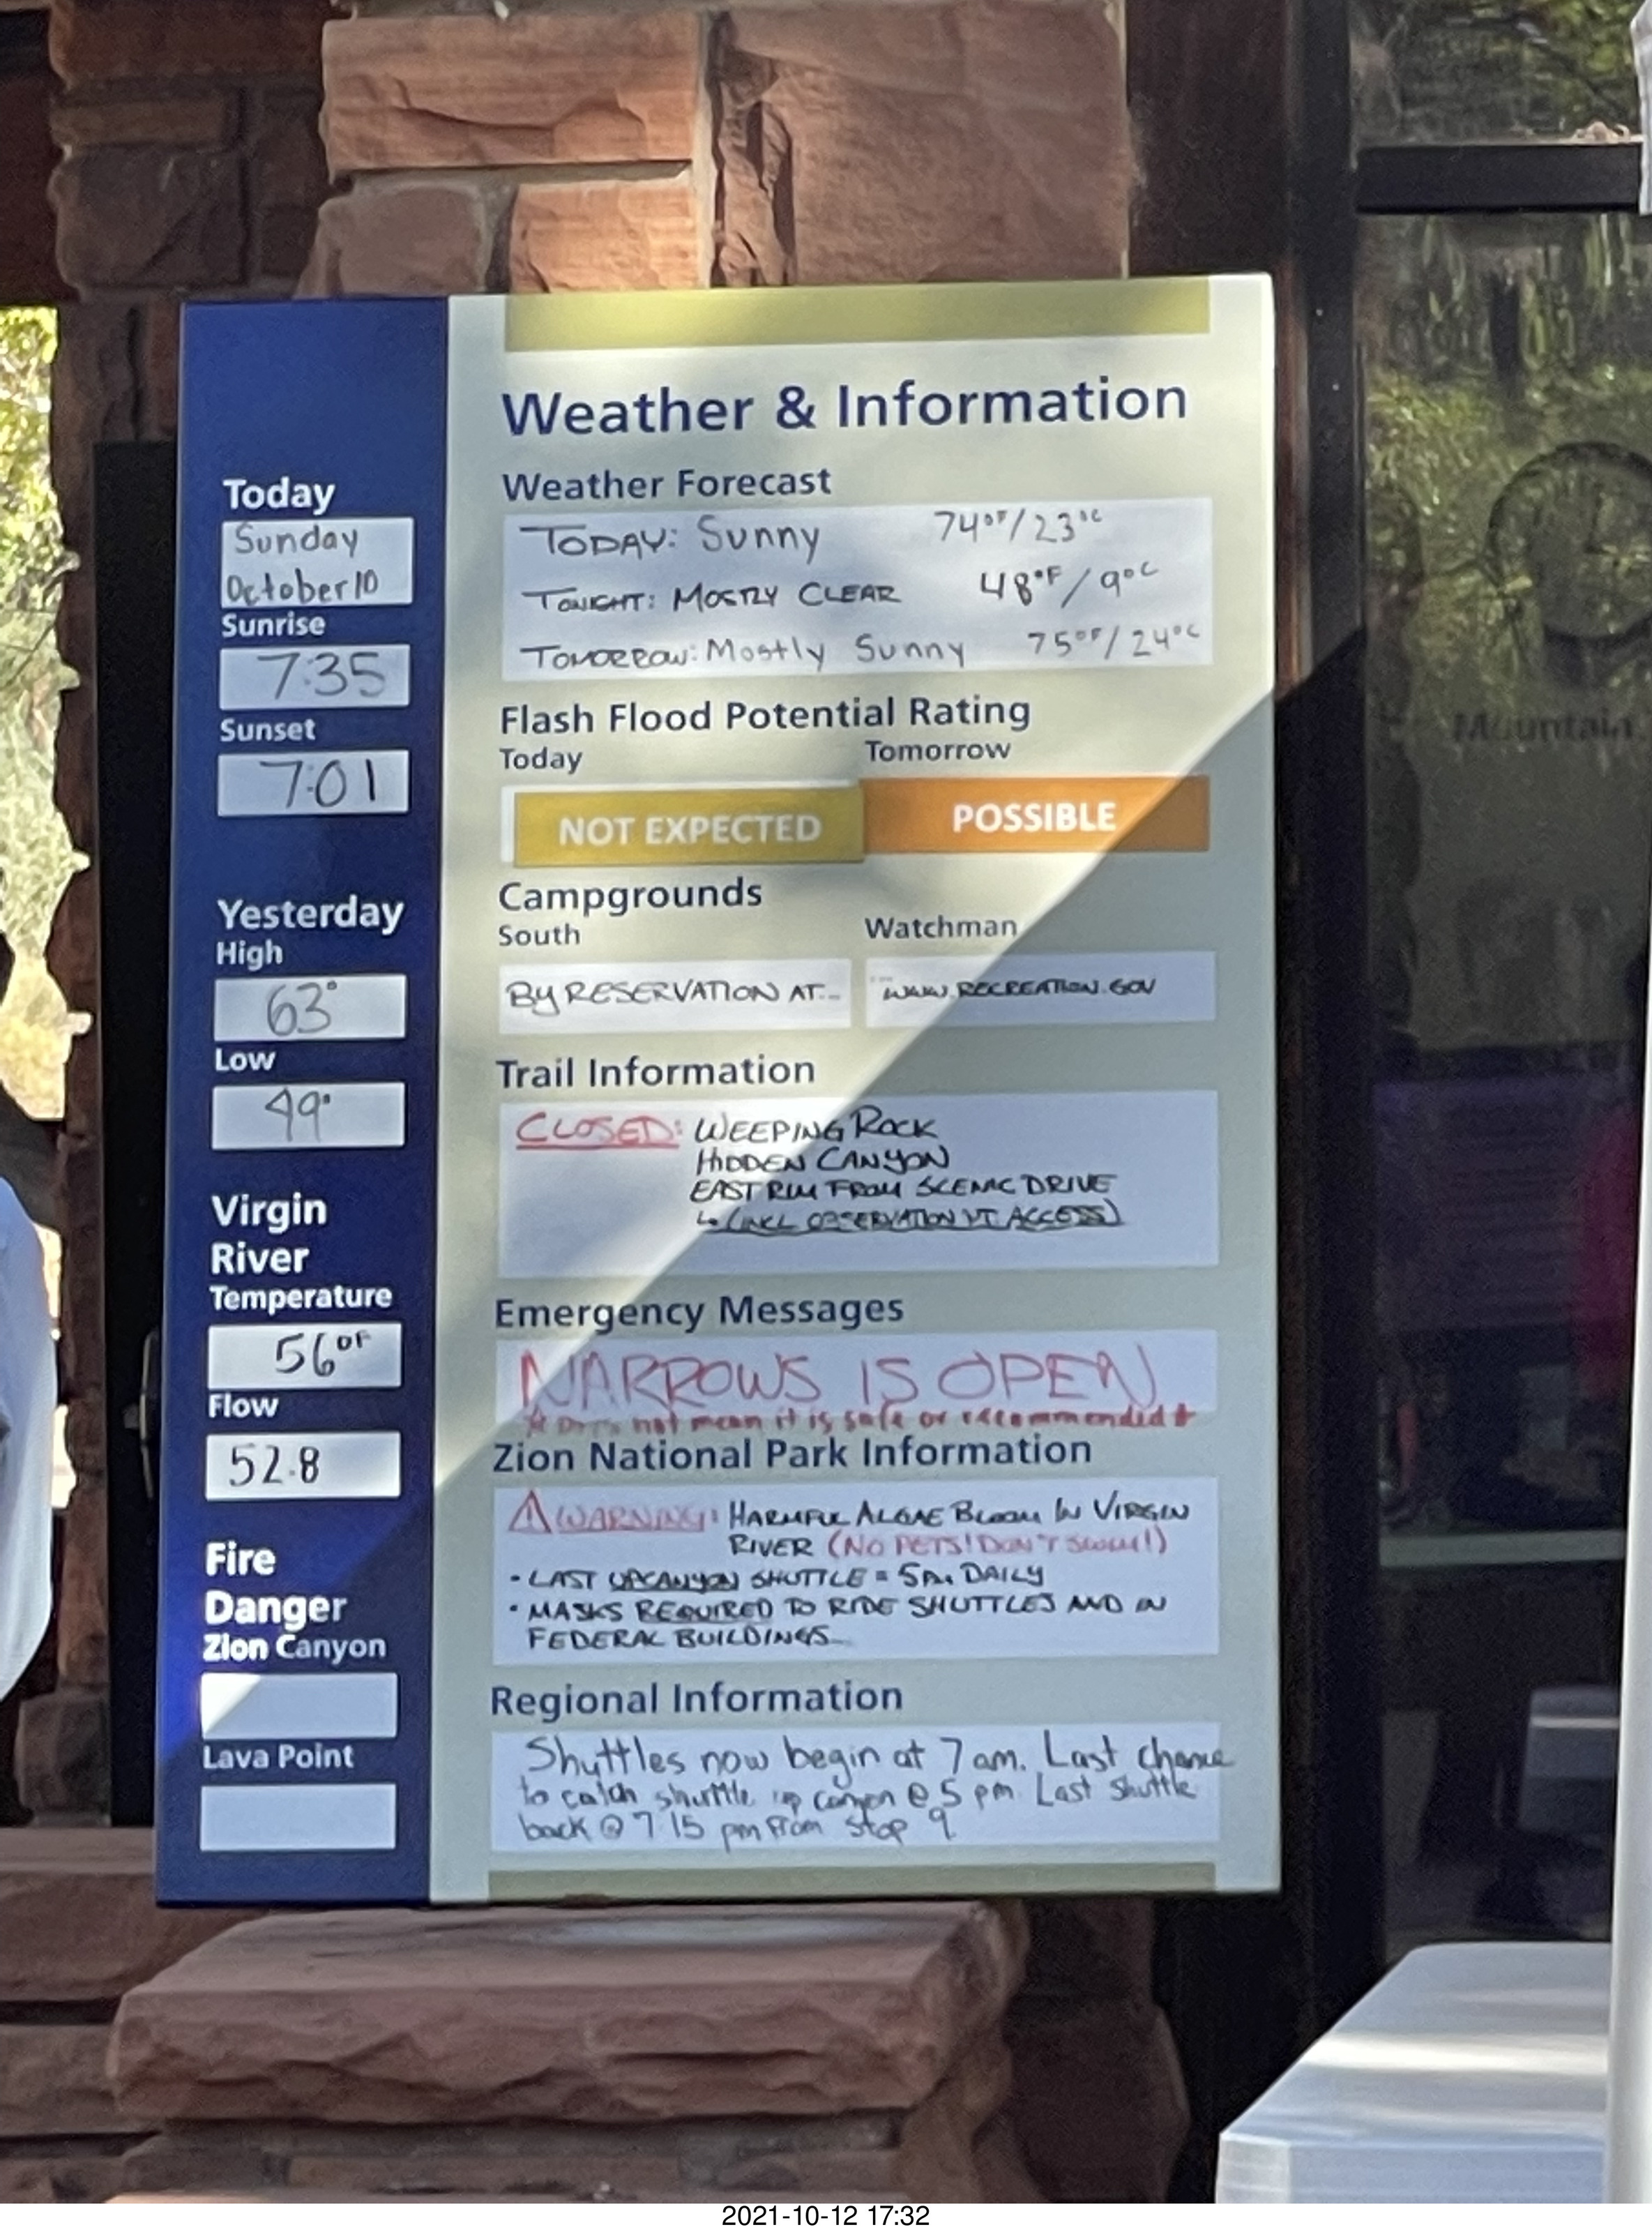 Today
Sunday
October 10
Sunrise
7:35
Sunset
7:01
Yesterday
High
63°
Low
49°
Virgin
River
Temperature
56°F
Flow
52.8
Fire
Danger
Zion Canyon
Lava Point
Weather & Information
Weather Forecast
TODAY: Sunny 74°F/23°C
TONIGHT: MOSTLY CLEAR 48°F/9°C
TOMORROW: Mostly Sunny 75°F/24°C
Flash Flood Potential Rating
Today Tomorrow
NOT EXPECTED POSSIBLE
Campgrounds
South Watchman
BY RESERVATION AT... WWW.RECREATION.GOV
Trail Information
CLOSED: WEEPING ROCK
HIDDEN CANYON
EAST RIM FROM SCENIC DRIVE
↳ (INCL OBSERVATION PT ACCESS)
Emergency Messages
NARROWS IS OPEN
* Does not mean it is safe or recommended *
Zion National Park Information
⚠ WARNING: HARMFUL ALGAE BLOOM IN VIRGIN
RIVER (NO PETS! DON'T SWIM!)
• LAST UPCANYON SHUTTLE = 5PM DAILY
• MASKS REQUIRED TO RIDE SHUTTLES AND IN
FEDERAL BUILDINGS
Regional Information
Shuttles now begin at 7 am. Last chance
to catch shuttle up canyon @ 5 pm. Last Shuttle
back @ 7:15 pm from Stop 9
Mountain
2021-10-12 17:32